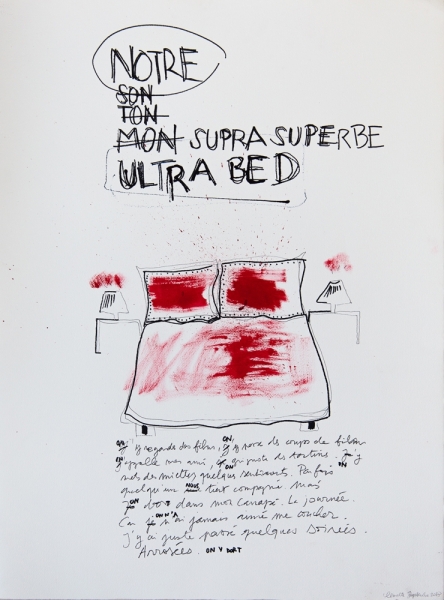 NOTRE
SON
TON
MON SUPRA SUPERBE
ULTRA BED
j'y regarde des films, ON y passe des coups de
ON appelle mes amis, ON
mets des miettes quelques Parfois ON
quelqu'un NOUS tient compagnie mais
ON dort dans mon canapé. La journée.
Car ON N'A jamais aimé me coucher.
J'y ai juste passé quelques soirées
Arrosées. ON Y DORT